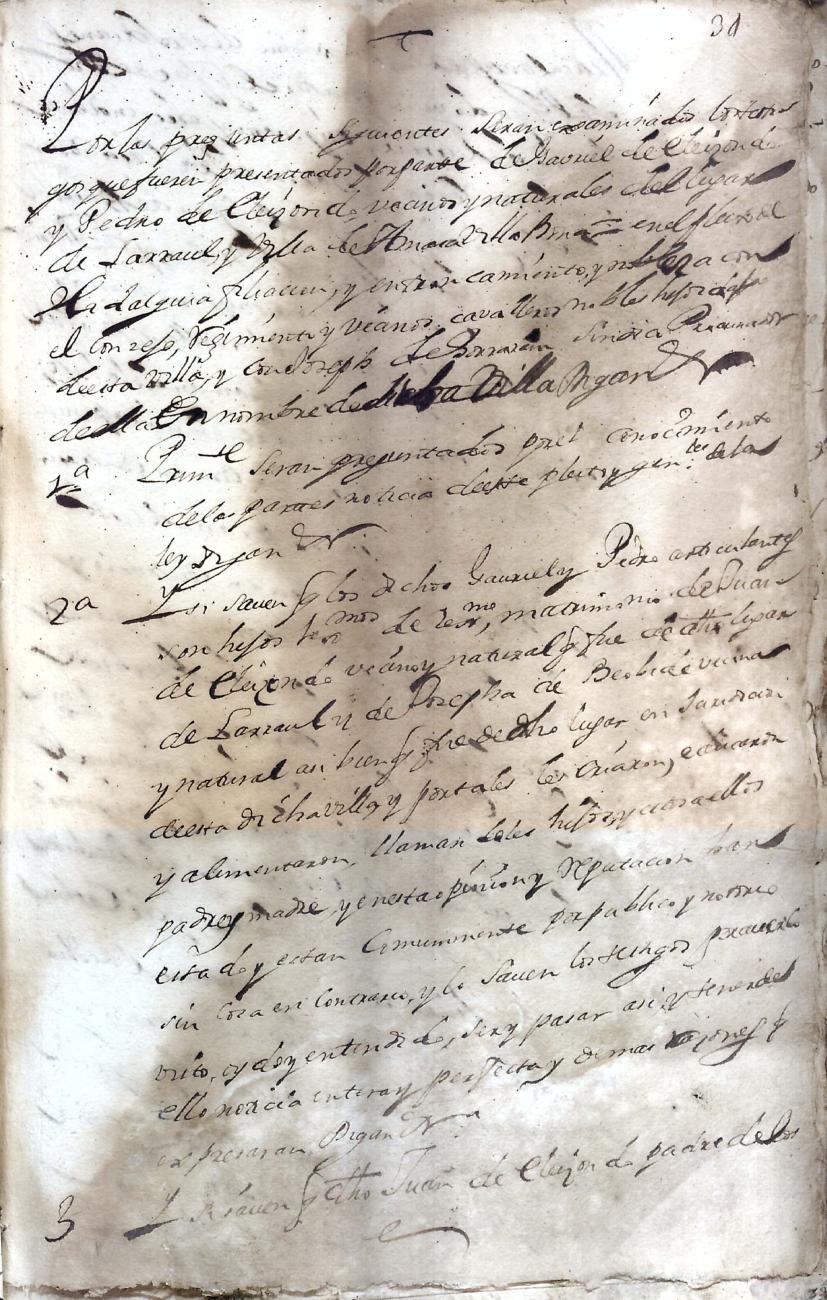 31
Por las preguntas siguientes seran examinados los testi
gos que fueren presentados por parte de Gavriel de Eleizondo
y Pedro de Eleizondo vecinos y naturales del lugar
de Larraul, y Villa de Amasa Villa Bona = en el pleito de
Hidalguia filiacion, y entroncamiento, y nobleza con
el Conzejo, Regimiento y vecinos, cavalleros nobles hijosdalgo
de esta Villa, y con Joseph de sindico Procurador
de ella En nombre de dicha Villa Digan
1ª Primte seran preguntados por el conocimiento
de las partes noticia de este pleito y genles de la
ley Digan
2ª Y si saven q los dichos Gavriel y Pedro articulantes
son hijos lexmos de lexmo matrimonio de Juan
de Eleizondo vecino y natural q fue de dho lugar
de Larraul y de Josepha de Beobide vecina
y natural asi bien q fue de dho lugar en
de esta dicha villa, y por tales les criaron, educaron
y alimentaron, llamandoles hijos, y estos a ellos
padre y madre, y en esta opinion y Reputacion han
estado y estan Comunmente por publico y notorio
sin Cosa en Contrario, y lo saven los testigos por averlo
visto, oydo y entendido, ser y pasar asi y tener de
ello noticia entera y perfecta y demas razones q
expresaran Digan
3 Y si saven q dho Juan de Eleizondo padre de los